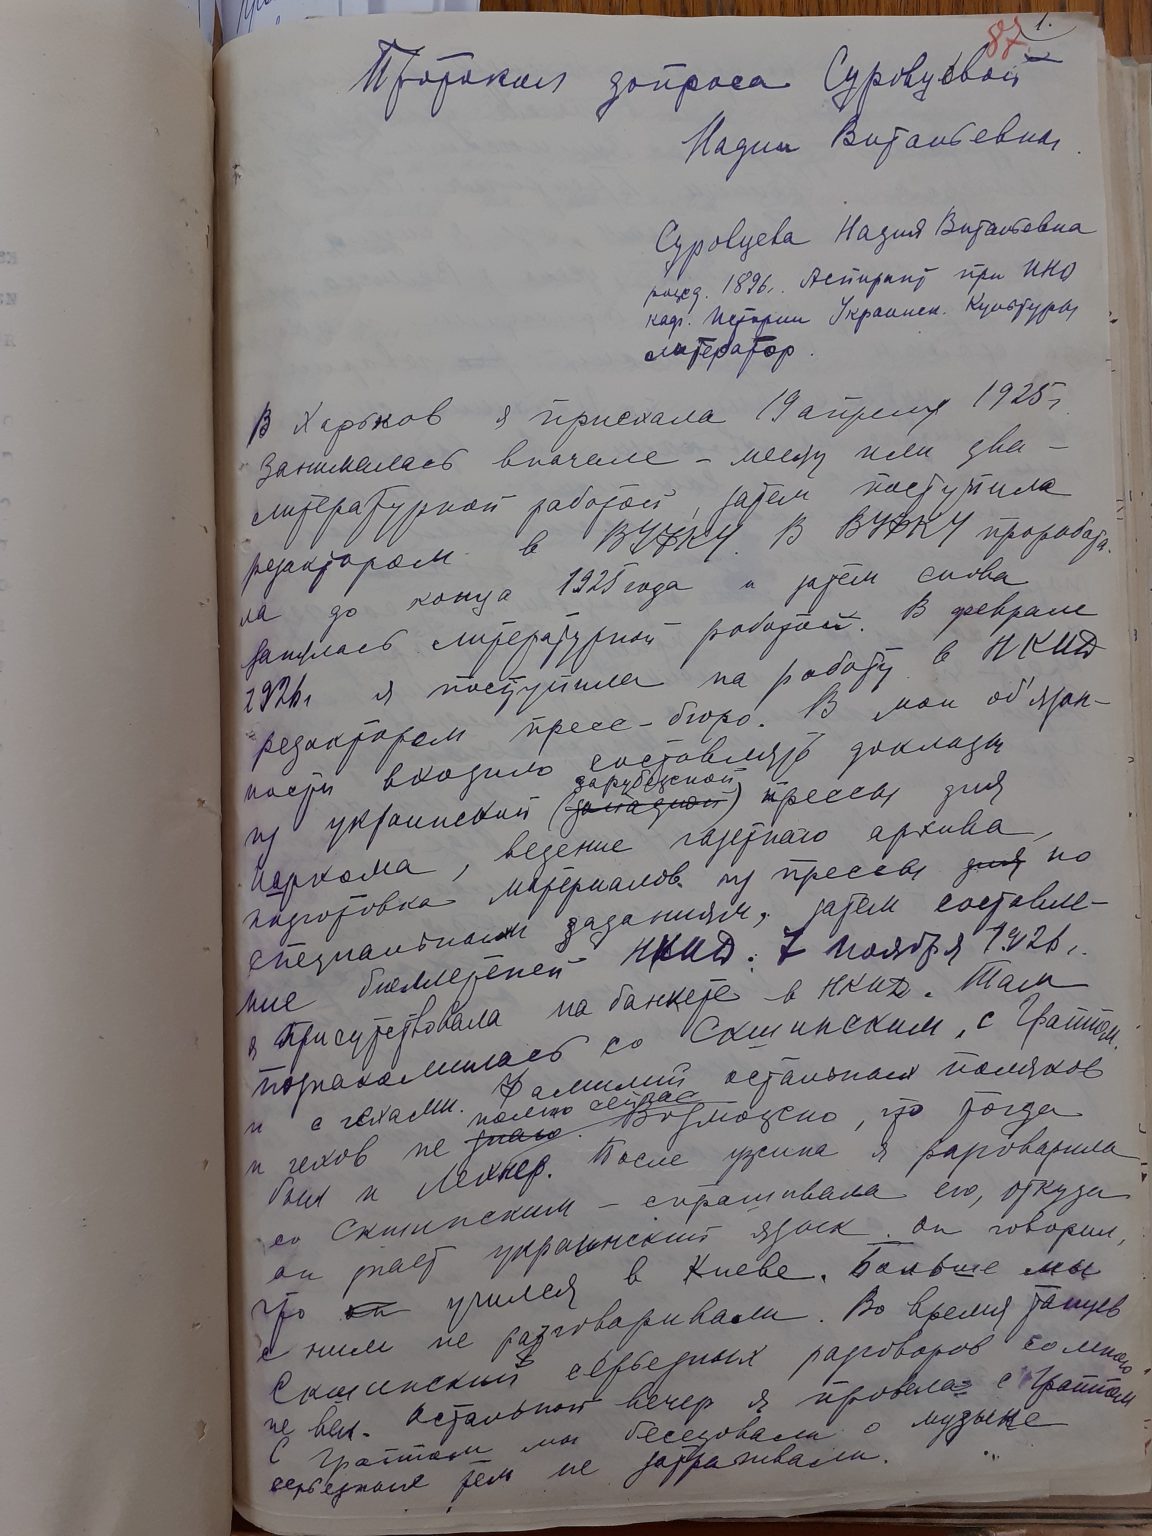 87 1.
Протокол допроса Суровцевой
Надии Витальевны.
Суровцева Надия Витальевна
рожд. 1896г. Аспирант при ИНО
каф. Истории Украинск. Культуры
литератор.
В Харьков я приехала 19 апреля 1925 г.
Занималась вначале – месяц или два –
литературной работой, затем поступила
редактором в ВУФКУ. В ВУФКУ проработа-
ла до конца 1925 года и затем снова
занялась литературной работой. В феврале
1926г я поступила на работу в НКИД
редактором пресс-бюро. В мои об'язан-
ности входило составлять доклады
из украинской (западной) зарубежной прессы для
наркома, ведение газетного архива,
подготовка материалов из прессы для по
специальным заданиям, затем составле-
ние бюллетеней НКИД. 7 ноября 1926 г.
я присутствовала на банкете в НКИД. Там
познакомилась со Скшинским, с Граппом.
и с чехами. Фамилий остальных поляков
и чехов не знаю. помню сейчас Возможно, что тогда
был и Лехнер. После ужина я разговарила
со Скшинским – спрашивала его, откуда
он знает украинский язык. он говорил,
что он учился в Киеве. Больше мы
с ним не разговаривали. Во время танцев
Скшинский серьезных разговоров со мною
не вел. Остальной вечер я провела с Граппом
С Граппом мы беседовали о музыке
серьезных тем не затрагивали.